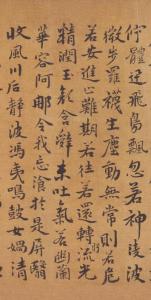 佇體迅飛鳧飄忽若神陵波
微步羅襪生塵動無常則若危
若安進止難期若往若還轉眄流光
精潤玉顏含辭未吐氣若幽蘭
華容阿那令我忘飡於是屏翳
收風川后靜波馮夷鳴鼓女媧清